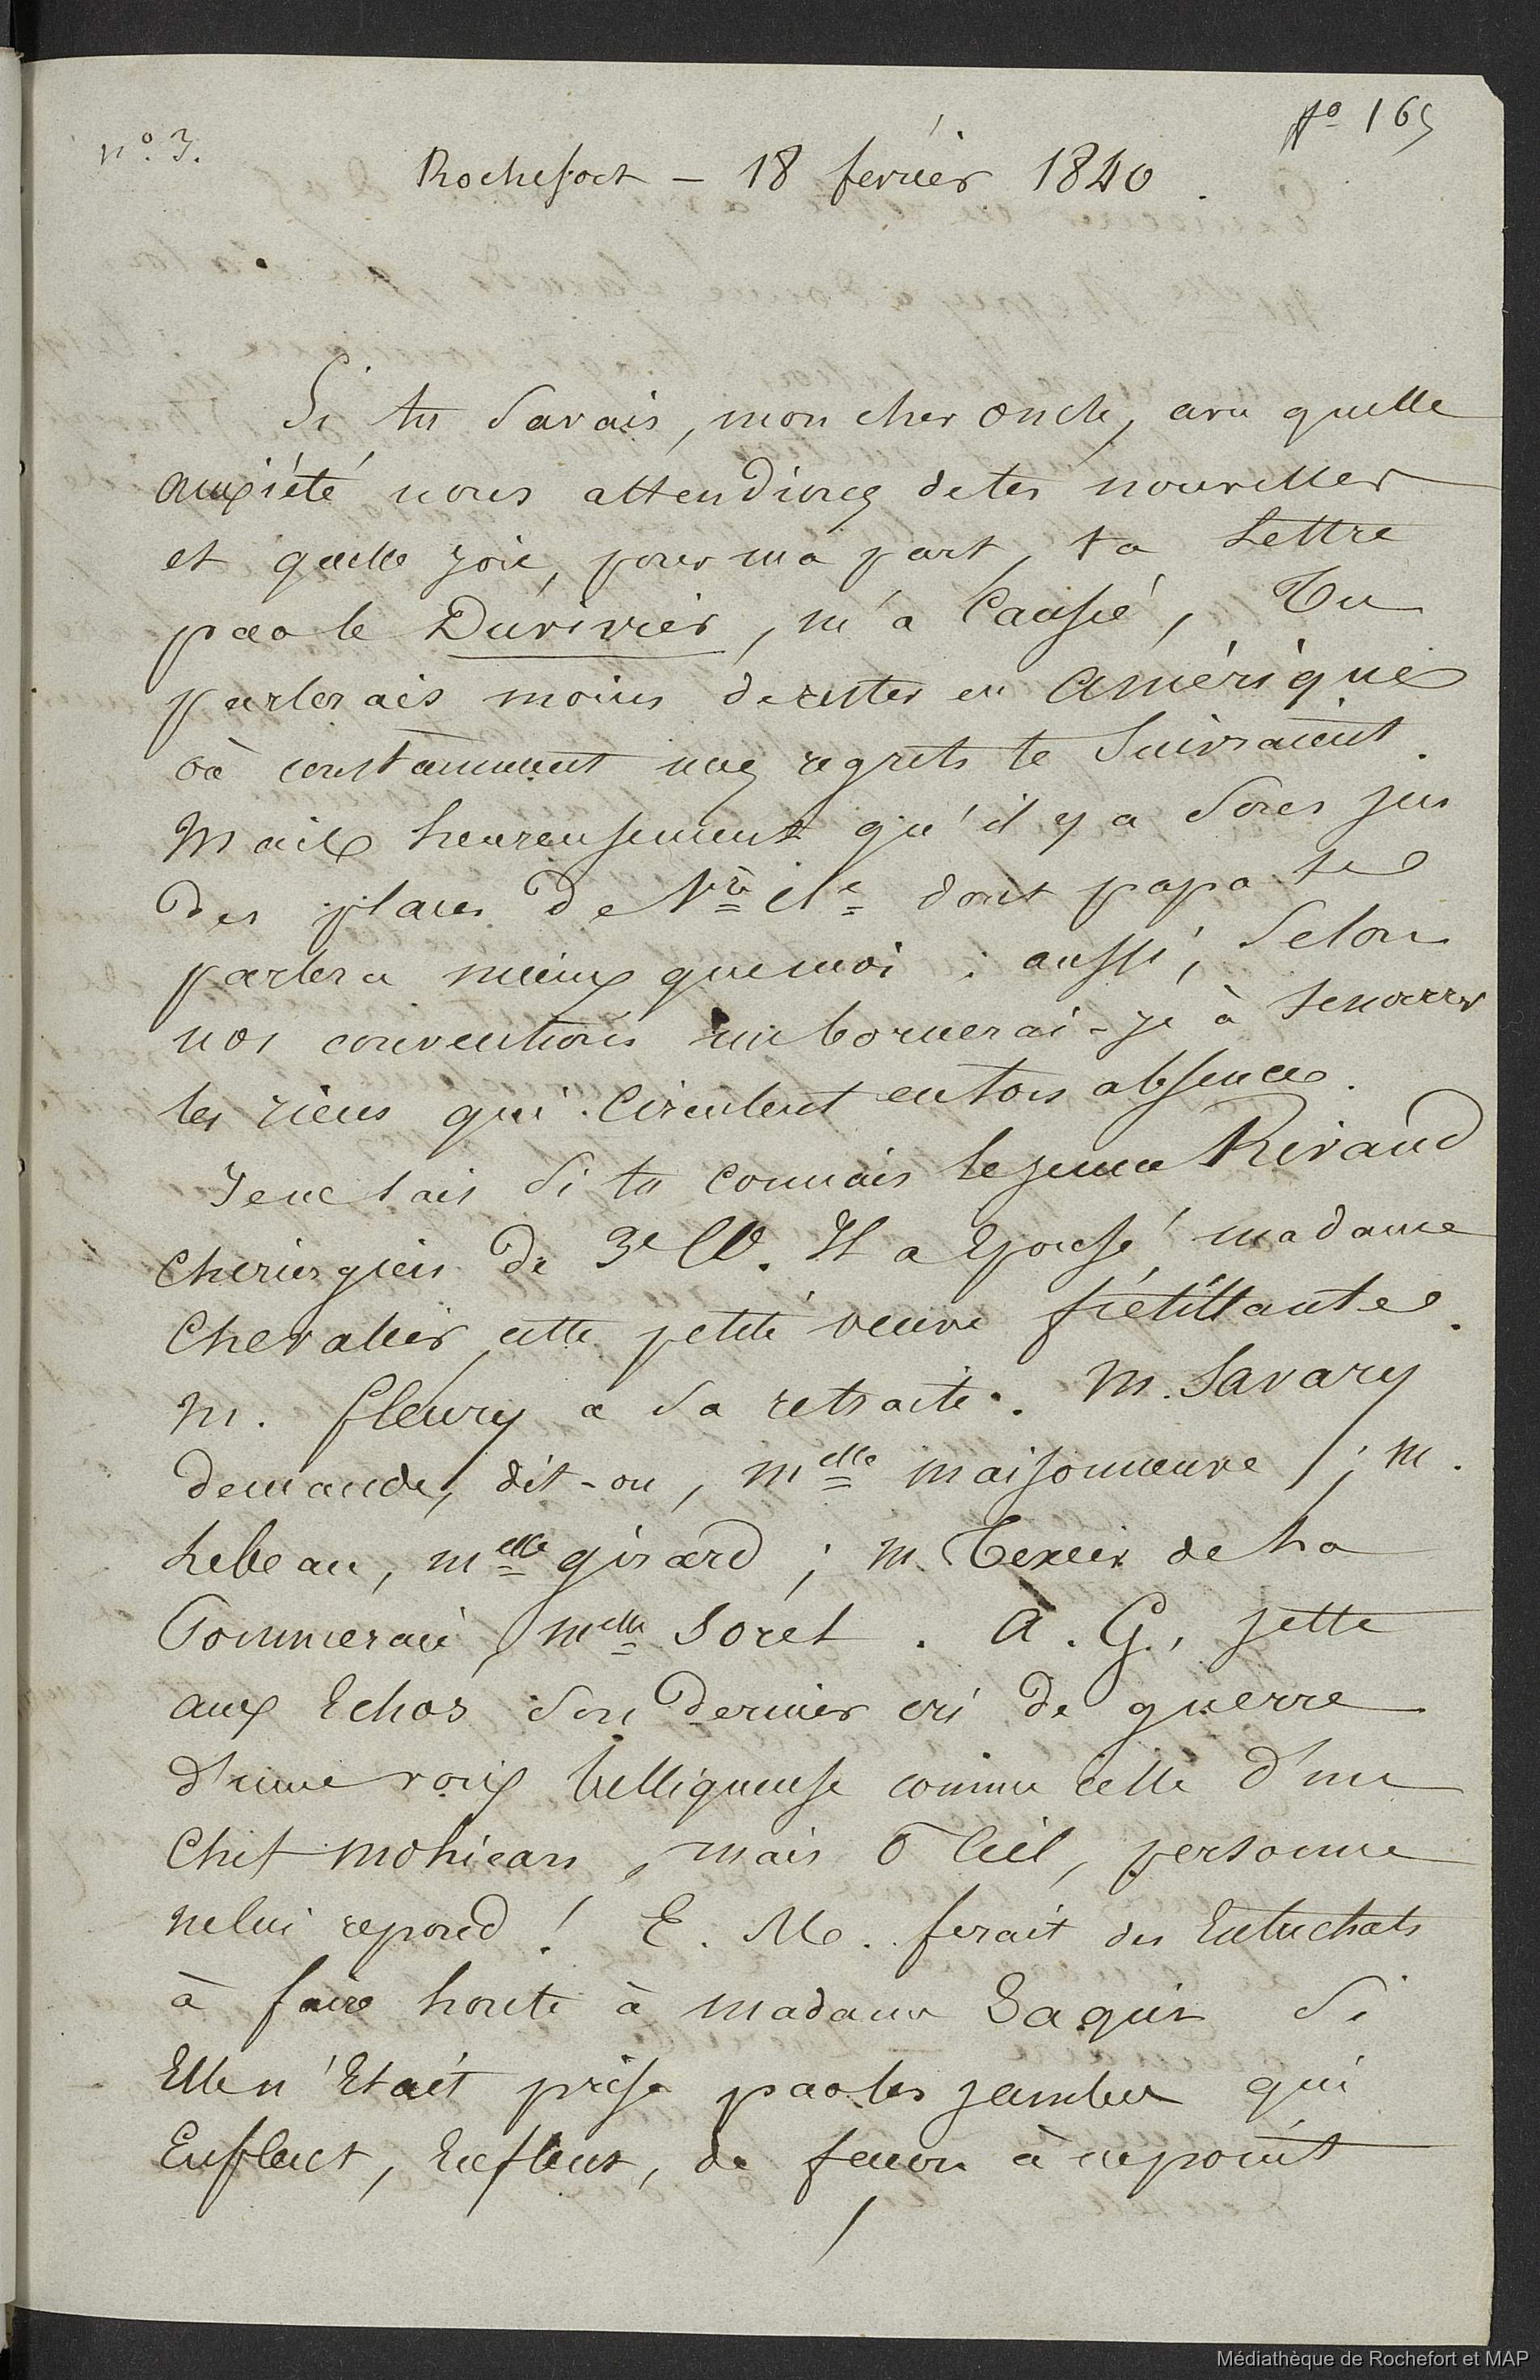 n.º 3.
fº 165
Rochefort – 18 février 1840.
Si tu savais, mon cher oncle, avec quelle
anxiété nous attendions de tes nouvelles
et quelle joie, pour ma part, ta Lettre
par le Duvivier, m'a Causée, Tu
parlerais moins de rester en Amérique
où constamment nos regrets te Suivraient.
Mais heureusement qu'il y a Sores sur
des places de 1re cle dont papa te
parlera mieux que moi : aussi, Selon
nos conventions me bornerai-je à te narrer
les riens qui Circulent en ton absence.
Je ne sais Si tu connais le jeune Rivaud
Chirurgien de 3e Cl. Il a Epousé madame
Chevalier, cette petite veuve frétillante.
M. fleury a Sa retraite. M. Savary
demande, dit-on, melle maisonneuve ; M.
Lebeau, melle girard ; M. Texier de La
Pommeraie, melle Soret. A. G., jette
aux Echos Son dernier cri de guerre
d'une voix belliqueuse comme celle d'un
Chef mohican, mais ô Ciel, personne
ne lui repond ! E. M. ferait des Entrechats
à faire honte à madame Saqui Si
Elle n'Etait prise par les jambes qui
Enflent, Enflent, de facon à ne point